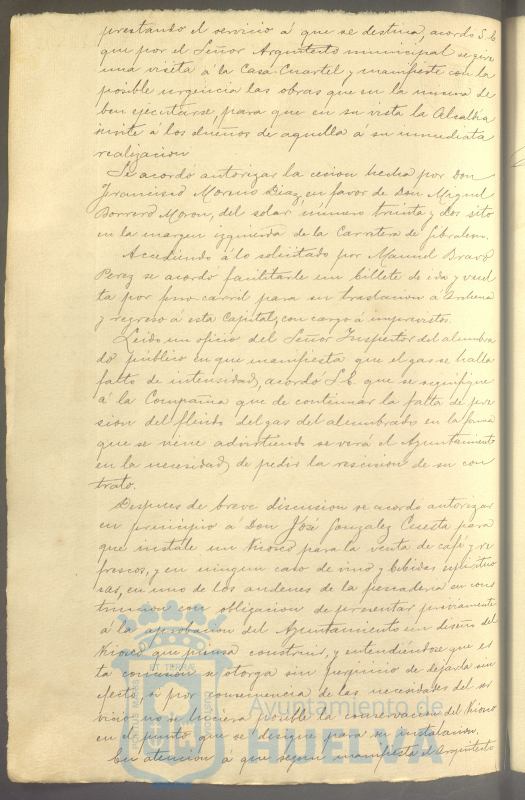 prestando el servicio á que se destina, acordó S.E.
que por el Señor Arquitecto municipal se gire
una visita á la Casa-Cuartel y manifieste con la
posible urgencia las obras que en la misma de
ben ejecutarse, para que en su vista la Alcaldia
invite á los dueños de aquella á su inmediata
realizacion
Se acordó autorizar la cesion hecha por Don
Francisco Moreno Diaz, en favor de Don Miguel
Borrero Moron, del solar número treinta y dos sito
en la margen izquierda de la Carretera de Gibraleon.
Accediendo á lo solicitado por Manuel Bravo
Perez se acordó facilitarle un billete de ida y vuel
ta por ferro-carril para su traslacion á
y regreso á esta Capital, con cargo á imprevistos.
Leido un oficio del Señor Inspector del alumbra
do público en que manifiesta que el gas se halla
falto de intensidad, acordó S.E. que se signifique
á la Compañia que de continuar la falta de pre
sion del fluido del gas del alumbrado en la forma
que se viene advirtiendo se verá el Ayuntamiento
en la necesidad de pedir la rescision de su con
trato.
Despues de breve discusion se acordó autorizar
en principio á Don José Gonzalez Cuesta para
que instale un Kiosco para la venta de café y re
frescos, y en ningun caso de vino y bebidas espirituo
sas, en uno de los andenes de la pescaderia en cons
truccion con obligacion de presentar préviamente
á la aprobacion del Ayuntamiento un diseño del
Kiosco que piensa construir, y entendiendose que es
ta concesion se otorga sin perjuicio de dejarla sin
efecto si por consecuencia de las necesidades del ser
vicio no se hiciera posible la conservacion del Kiosco
en el punto que se designe para su instalacion.
En atencion á que segun manifiesta el Arquitecto
ET TERRAE
PORTUS MARIS
CUSTODIA
Ayuntamiento de
HUELVA